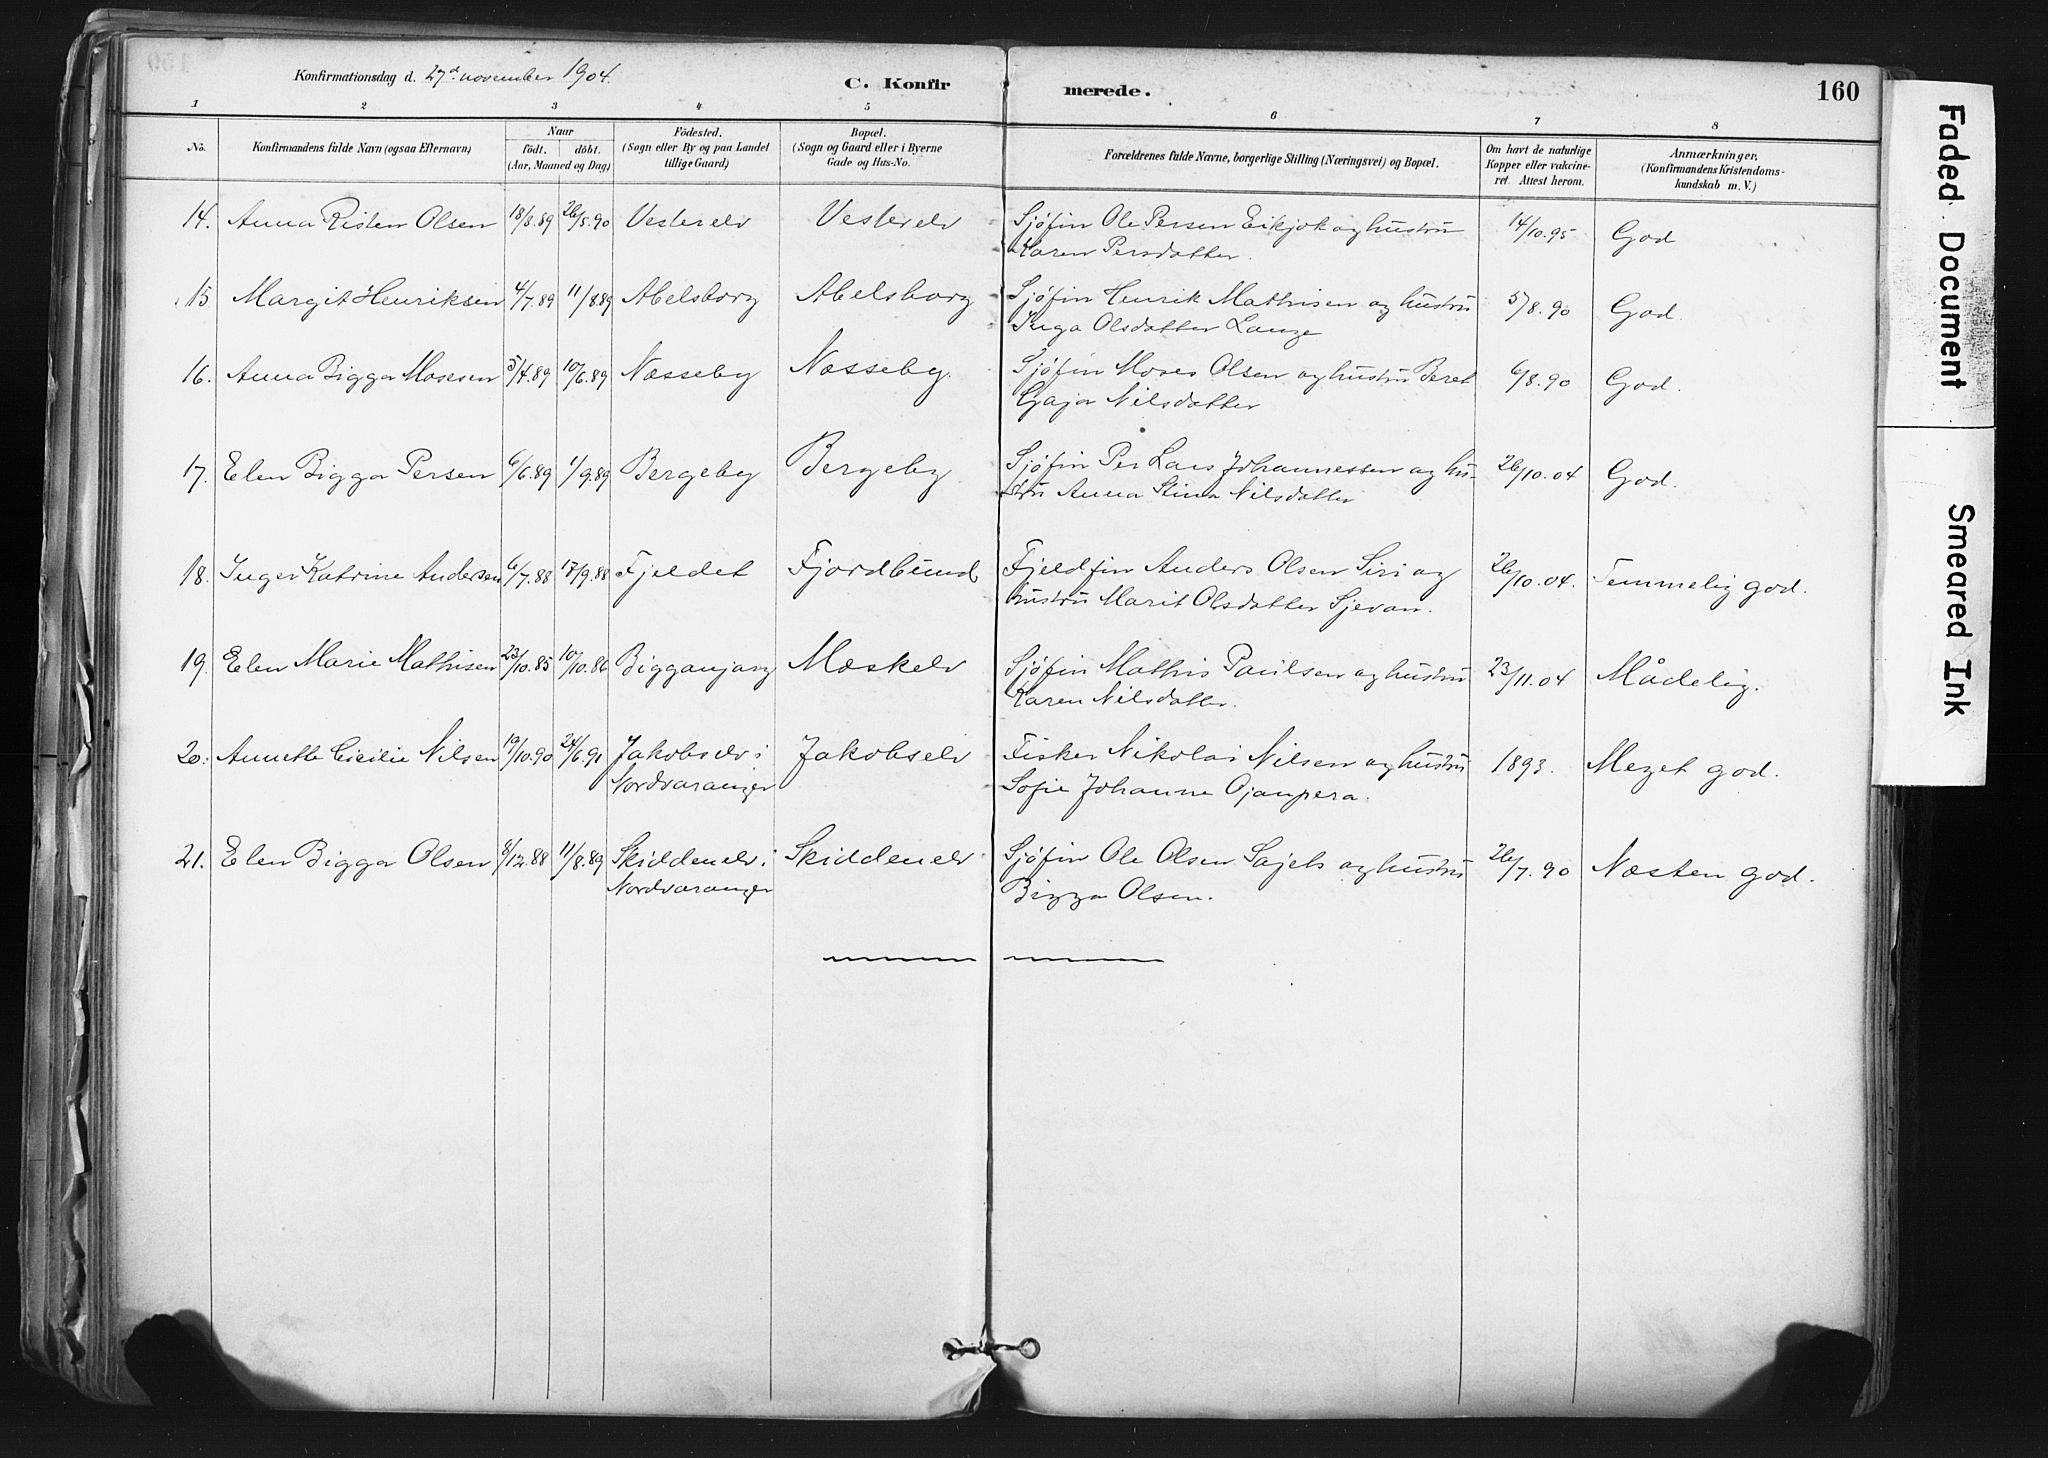 Konfirmationsdag d. 27d november 1904.
C. Konfirmerede.
160
1 2 3 4 5 6 7 8
No.
Konfirmandens fulde Navn (ogsaa Efternavn)
Naar
födt. döbt.
(Aar, Maaned og Dag)
Födested.
(Sogn eller By og paa Landet
tillige Gaard)
Bopæl.
(Sogn og Gaard eller i Byerne
Gade og Hus-No.
Forældrenes fulde Navne, borgerlige Stilling (Næringsvei) og Bopæl.
Om havt de naturlige
Kopper eller vakcine-
ret. Attest herom.
Anmærkninger,
(Konfirmandens Kristendoms-
kundskab m. V.)
14. Anna Risten Olsen 18/8.89 26/5.90 Vesterelv Vesterelv Sjøfin Ole Persen Eikjok og hustru 14/10.95 God
Karen Persdatter.
15 Margit Henriksen 4/7.89 11/8.89 Abelsborg Abelsborg Sjøfin Henrik Mathisen og hustru 5/8.90 God.
Inga Olsdatter Lange
16. Anna Bigga Mosesen 5/4.89 10/6.89 Næsseby Næsseby. Sjøfin Moses Olsen og hustru Beret 6/8.90 God.
Gaja Nilsdatter
17. Elen Bigga Persen 6/6.89 1/9.89 Bergeby Bergeby Sjøfin Per Lars Johannessen og hu- 26/10.04 God.
stru Anna Stina Nilsdatter
18. Inger Katrine Andersen 6/7.88 17/9.88 Fjeldet Fjordbund Fjeldfin Anders Olsen Siri og 26/10.04. Temmelig god.
hustru Marit Olsdatter Sjevan.
19. Elen Marie Mathisen 23/10.85 10/10.86 Bigganjarg Mæskelv Sjøfin Mathis Paulsen og hustru 23/11.04 Mådelig.
Karen Nilsdatter.
20. Annette Cicilie Nilsen 19/10.90 24/6.91 Jakobselv i Jakobselv Fisker Nikolai Nilsen og hustru 1893. Meget god.
Nordvaranger Sofie Johanne Ojanpera.
21. Elen Bigga Olsen 8/12.88 11/8.89 Skiddenelv i Skiddenelv Sjøfin Ole Olsen Sajets og hustru 26/7.90 Næsten god.
Nordvaranger Bigga Olsen.
Faded Document
Smeared Ink